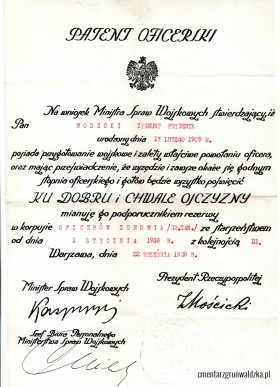 PATENT OFICERSKI
Na wniosek Ministra Spraw Wojskowych stwierdzający, iż
Pan WODZICKI ZYGMUNT FRYDERYK
urodzony dnia 17 LUTEGO 1909 R.
posiada przygotowanie wojskowe i zalety właściwe powołaniu oficera,
oraz mając przeświadczenie, że wszędzie i zawsze okaże się godnym
stopnia oficerskiego i gotów będzie wszystko poświęcić
KU DOBRU i CHWALE OJCZYZNY
mianuję go podporucznikiem rezerwy
w korpusie OFICERÓW ZDROWIA ze starszeństwem
od dnia 1 STYCZNIA 1938 R. z kolejnością 21.
Warszawa, dnia 22 WRZEŚNIA 1938 R.
Prezydent Rzeczypospolitej
Minister Spraw Wojskowych
I Mościcki
Szef Biura Personalnego
Ministerstwa Spraw Wojskowych
cmentarzgrunwaldzka.pl